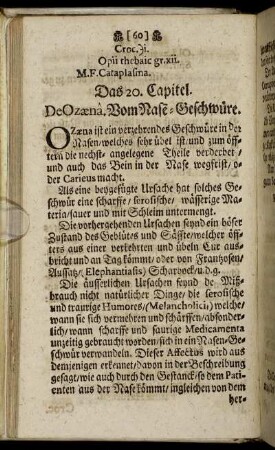 [60]
Croc.℈i.
Opii thebaic gr.xii.
M.F.Cataplasma.
Das 20. Capitel.
De Ozæna. Vom Nase-Geschwüre.
OZæna ist ein verzehrendes Geschwüre in der
Nasen/welches sehr übel ist/und zum öff-
tern die nechst- angelegene Theile verderbet/
und auch das Bein in der Nase wegfrist/o-
der Carieus macht.
Als eine beygefügte Ursache hat solches Ge-
schwür eine scharffe/ serosische/ wässerige Ma-
teria/sauer und mit Schleim untermengt.
Die vorhergehenden Ursachen seynd ein böser
Zustand des Geblüts und Säffte/welcher öff-
ters aus einer verkehrten und übeln Cur aus-
bricht und an Tag kömmt/ oder von Frantzosen/
Aussatz/(Elephantiasis) Scharbock/u.d.g.
Die äusserlichen Ursachen seynd de Miß-
brauch nicht natürlicher Dinge/die serosische
und traurige Humores,(Melancholici) welche/
wann sie sich vermehren und schärffen/absonder-
lich/wann scharffe und saurige Medicamenta
unzeitig gebraucht worden/sich in ein Nasen-Ge-
schwür verwandeln. Dieser Affectus wird aus
demjenigen erkennet/davon in der Beschreibung
gesagt/wie auch durch den Gestanck/so dem Pati-
enten aus der Nase kömmt/ingleichen von dem
her-